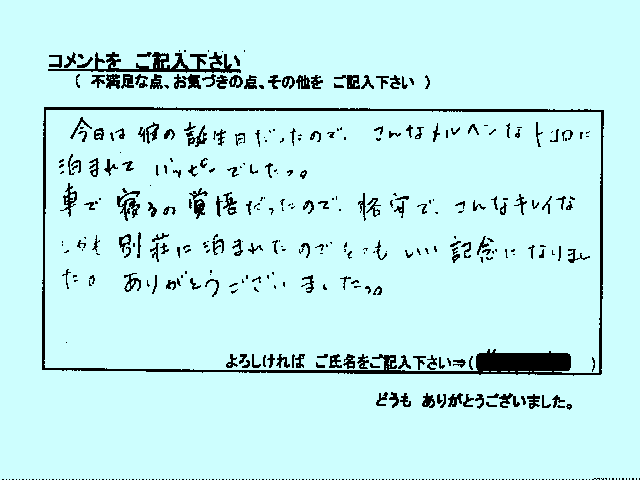 コメントを ご記入下さい
( 不満足な点、お気づきの点、その他を ご記入下さい )
今日は彼の誕生日だったので、こんなメルヘンなトコロに
泊まれて ハッピーでしたっ。
車で寝るの覚悟だったので、格安で、こんなキレイな
しかも 別荘に泊まれたのでとっても いい記念になりまし
た。 ありがとうございましたっ。
よろしければ ご氏名をご記入下さい⇒( )
どうも ありがとうございました。